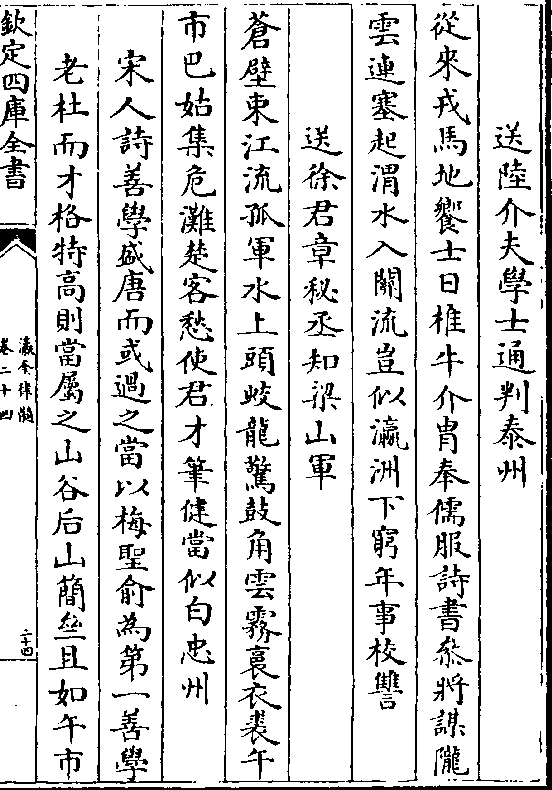 送陸介夫學士通判泰州
從來戎馬地饗士日椎牛介胄奉儒服詩書叅將謀隴
雲連塞起渭水入關流豈似瀛洲下窮年事校讐
送徐君章秘丞知梁山軍
蒼壁束江流孤軍水上頭蛟龍驚鼓角雲霧裛衣裘午
市巴姑集危灘楚客愁使君才筆健當似白忠州
宋人詩善學盛唐而或過之當以梅聖俞為第一善學
老杜而才格特高則當屬之山谷后山簡齋且如午市
欽定四庫全書
瀛奎律髓
卷二十四
二十四